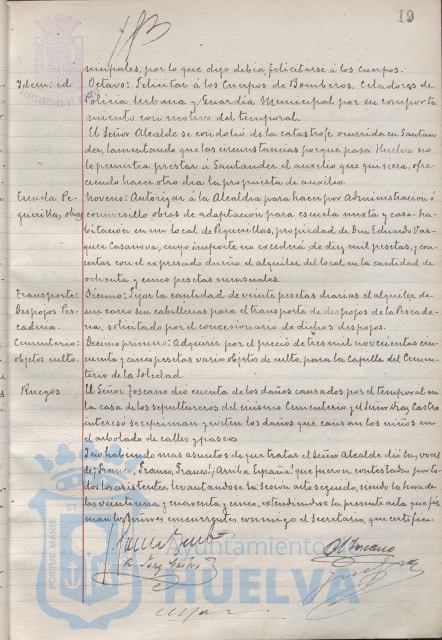 19
nicipales, por lo que dijo debia felicitarse á los Cuerpos.
Idem: id.
Octavo: Felicitar á los Cuerpos de Bomberos, Celadores de
Policia Urbana y Guardia Municipal por su comporta
miento con motivo del temporal.
El Señor Alcalde se condolió de la catastrofe ocurrida en Santan
der, lamentando que las circunstancias porque pasa Huelva no
le permitia prestár á Santander el auxilio que quisiera, ofre-
ciendo hacer otro dia la propuesta de auxilio.
Escuela Pe-
guerillas, obras
Noveno: Autorizar á la Alcaldia para hacer por Administracion ó
concursillo obras de adaptación para escuela mixta y casa-ha-
bitacion en un local de Peguerillas, propiedad de Don Eduardo Vaz-
quez Casanova, cuyo importe no excederá de diez mil pesetas, y con-
certar con el expresado dueño el alquiler del local en la cantidad de
ochenta y cinco pesetas mensuales.
Transporte:
Despojos Pes-
caderia.
Décimo: Fijar la cantidad de veinte pesetas diarias el alquiler de
un carro sin caballerias para el transporte de despojos de la Pescade-
ria, solicitado por el concesionario de dichos despojos.
Cementerio:
objetos culto.
Décimo primero: Adquirir por el precio de tres mil novecientas cin-
cuenta y cinco pesetas vario objetos de culto, para la Capilla del Cemen-
terio de la Soledad.
Ruegos
El Señor Toscano dió cuenta de los daños causados por el temporal en
la casa de los sepultureros del mismo Cementerio y el Señor Fray Castro
interesó se repriman y eviten los daños que causan los niños en
el arbolado de calles y paseos.
Y no habiendo mas asuntos de que tratar el Señor Alcalde dió las voces
de: Franco, Franco, Franco; ¡Arriba España! que fueron contestadas por to-
dos los asistentes, levantandose la Sesion acto seguido, siendo la hora de
las veintiuna y cuarenta y cinco, extendiendose la presente acta que fir-
man los Señores concurrentes conmigo el Secretario, que certifico.
Toscano
Ayuntamiento de
HUELVA
PORTUS MARIS